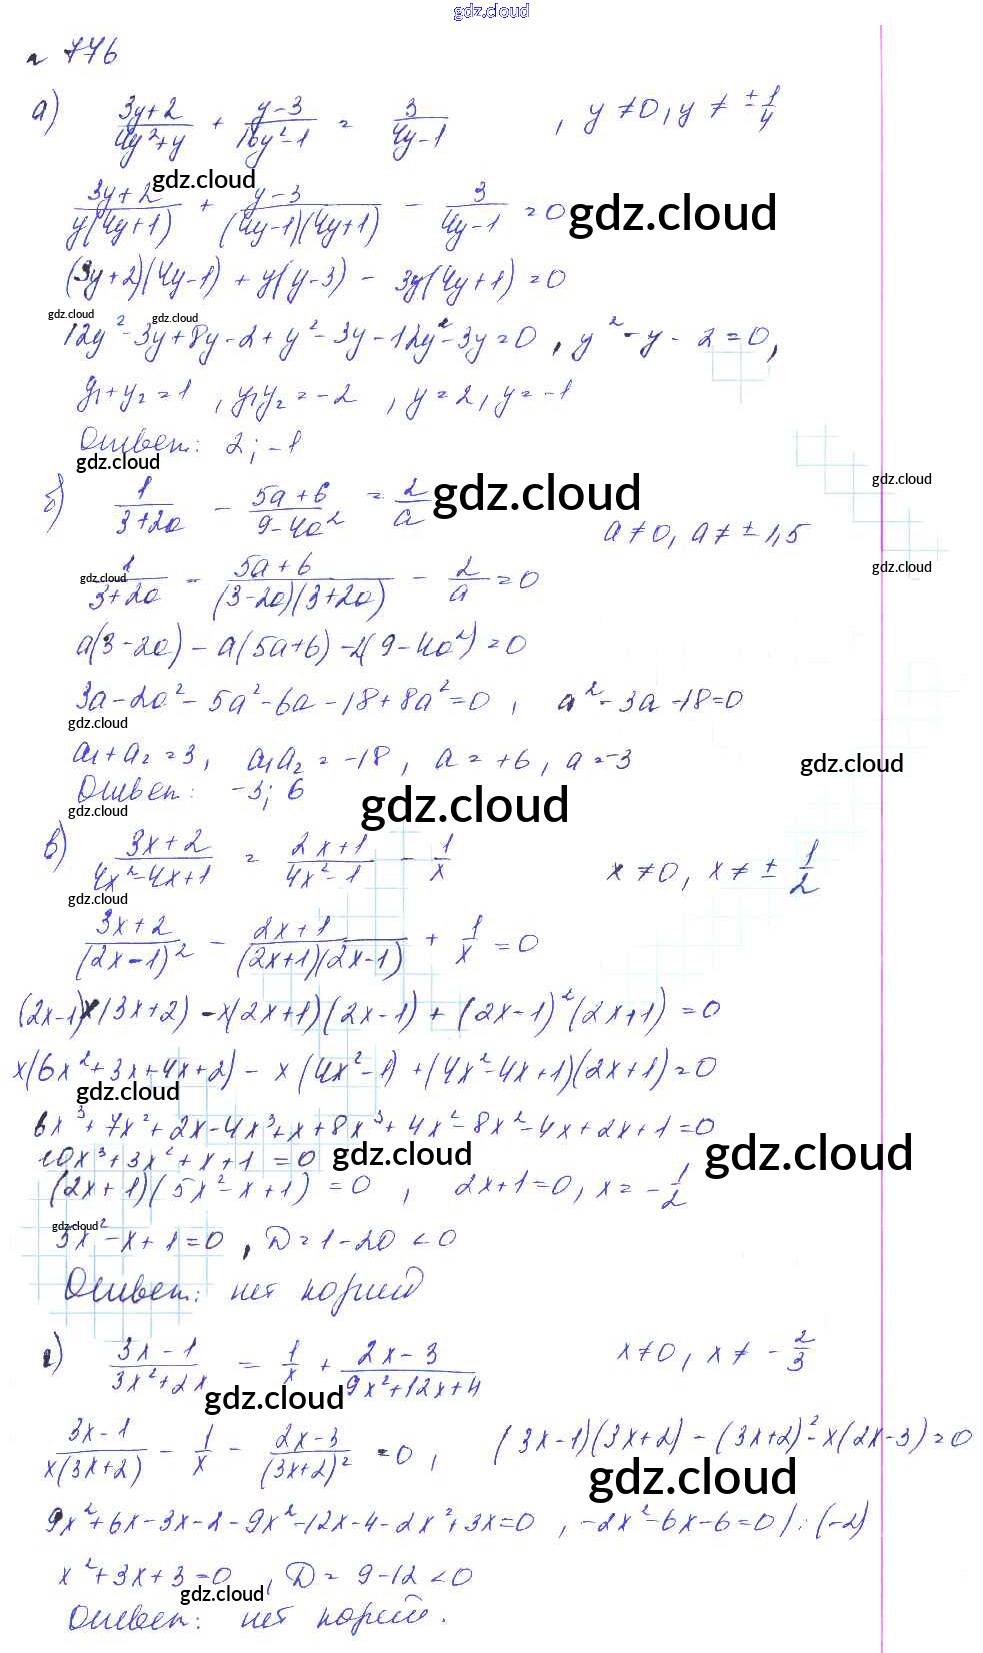 gdz.cloud
№ 776
а) (3y+2)/(4y²+y) + (y-3)/(16y²-1) = 3/(4y-1) , y ≠ 0, y ≠ ± 1/4
gdz.cloud
(3y+2)/(y(4y+1)) + (y-3)/((4y-1)(4y+1)) - 3/(4y-1) = 0 gdz.cloud
(3y+2)(4y-1) + y(y-3) - 3y(4y+1) = 0
gdz.cloud gdz.cloud
12y² - 3y + 8y - 2 + y² - 3y - 12y² - 3y = 0 , y² - y - 2 = 0,
y₁ + y₂ = 1 , y₁y₂ = -2 , y = 2, y = -1
Ответ: 2; -1
gdz.cloud
б) 1/(3+2a) - (5a+6)/(9-4a²) = 2/a gdz.cloud a ≠ 0, a ≠ ± 1,5
gdz.cloud
gdz.cloud 1/(3+2a) - (5a+6)/((3-2a)(3+2a)) - 2/a = 0 gdz.cloud
a(3-2a) - a(5a+6) - 2(9-4a²) = 0
3a - 2a² - 5a² - 6a - 18 + 8a² = 0 , a² - 3a - 18 = 0
gdz.cloud
a₁ + a₂ = 3, a₁a₂ = -18, a = +6, a = -3 gdz.cloud
Ответ: -3; 6
gdz.cloud gdz.cloud
в) (3x+2)/(4x²-4x+1) = (2x+1)/(4x²-1) - 1/x x ≠ 0, x ≠ ± 1/2
gdz.cloud
(3x+2)/(2x-1)² - (2x+1)/((2x+1)(2x-1)) + 1/x = 0
(2x-1)x(3x+2) - x(2x+1)(2x-1) + (2x-1)²(2x+1) = 0
x(6x²+3x+4x+2) - x(4x²-1) + (4x²-4x+1)(2x+1) = 0
gdz.cloud
6x³ + 7x² + 2x - 4x³ + x + 8x³ + 4x² - 8x² - 4x + 2x + 1 = 0
10x³ + 3x² + x + 1 = 0 gdz.cloud gdz.cloud
(2x+1)(5x²-x+1) = 0 , 2x+1=0, x = - 1/2
gdz.cloud
5x² - x + 1 = 0 , D = 1 - 20 < 0
Ответ: нет корней
г) (3x-1)/(3x²+2x) = 1/x + (2x-3)/(9x²+12x+4) x ≠ 0, x ≠ - 2/3
gdz.cloud
(3x-1)/(x(3x+2)) - 1/x - (2x-3)/(3x+2)² = 0 , (3x-1)(3x+2) - (3x+2)² - x(2x-3) = 0
gdz.cloud
9x² + 6x - 3x - 2 - 9x² - 12x - 4 - 2x² + 3x = 0 , -2x² - 6x - 6 = 0 /: (-2)
x² + 3x + 3 = 0 , D = 9 - 12 < 0
gdz.cloud
Ответ: нет корней.